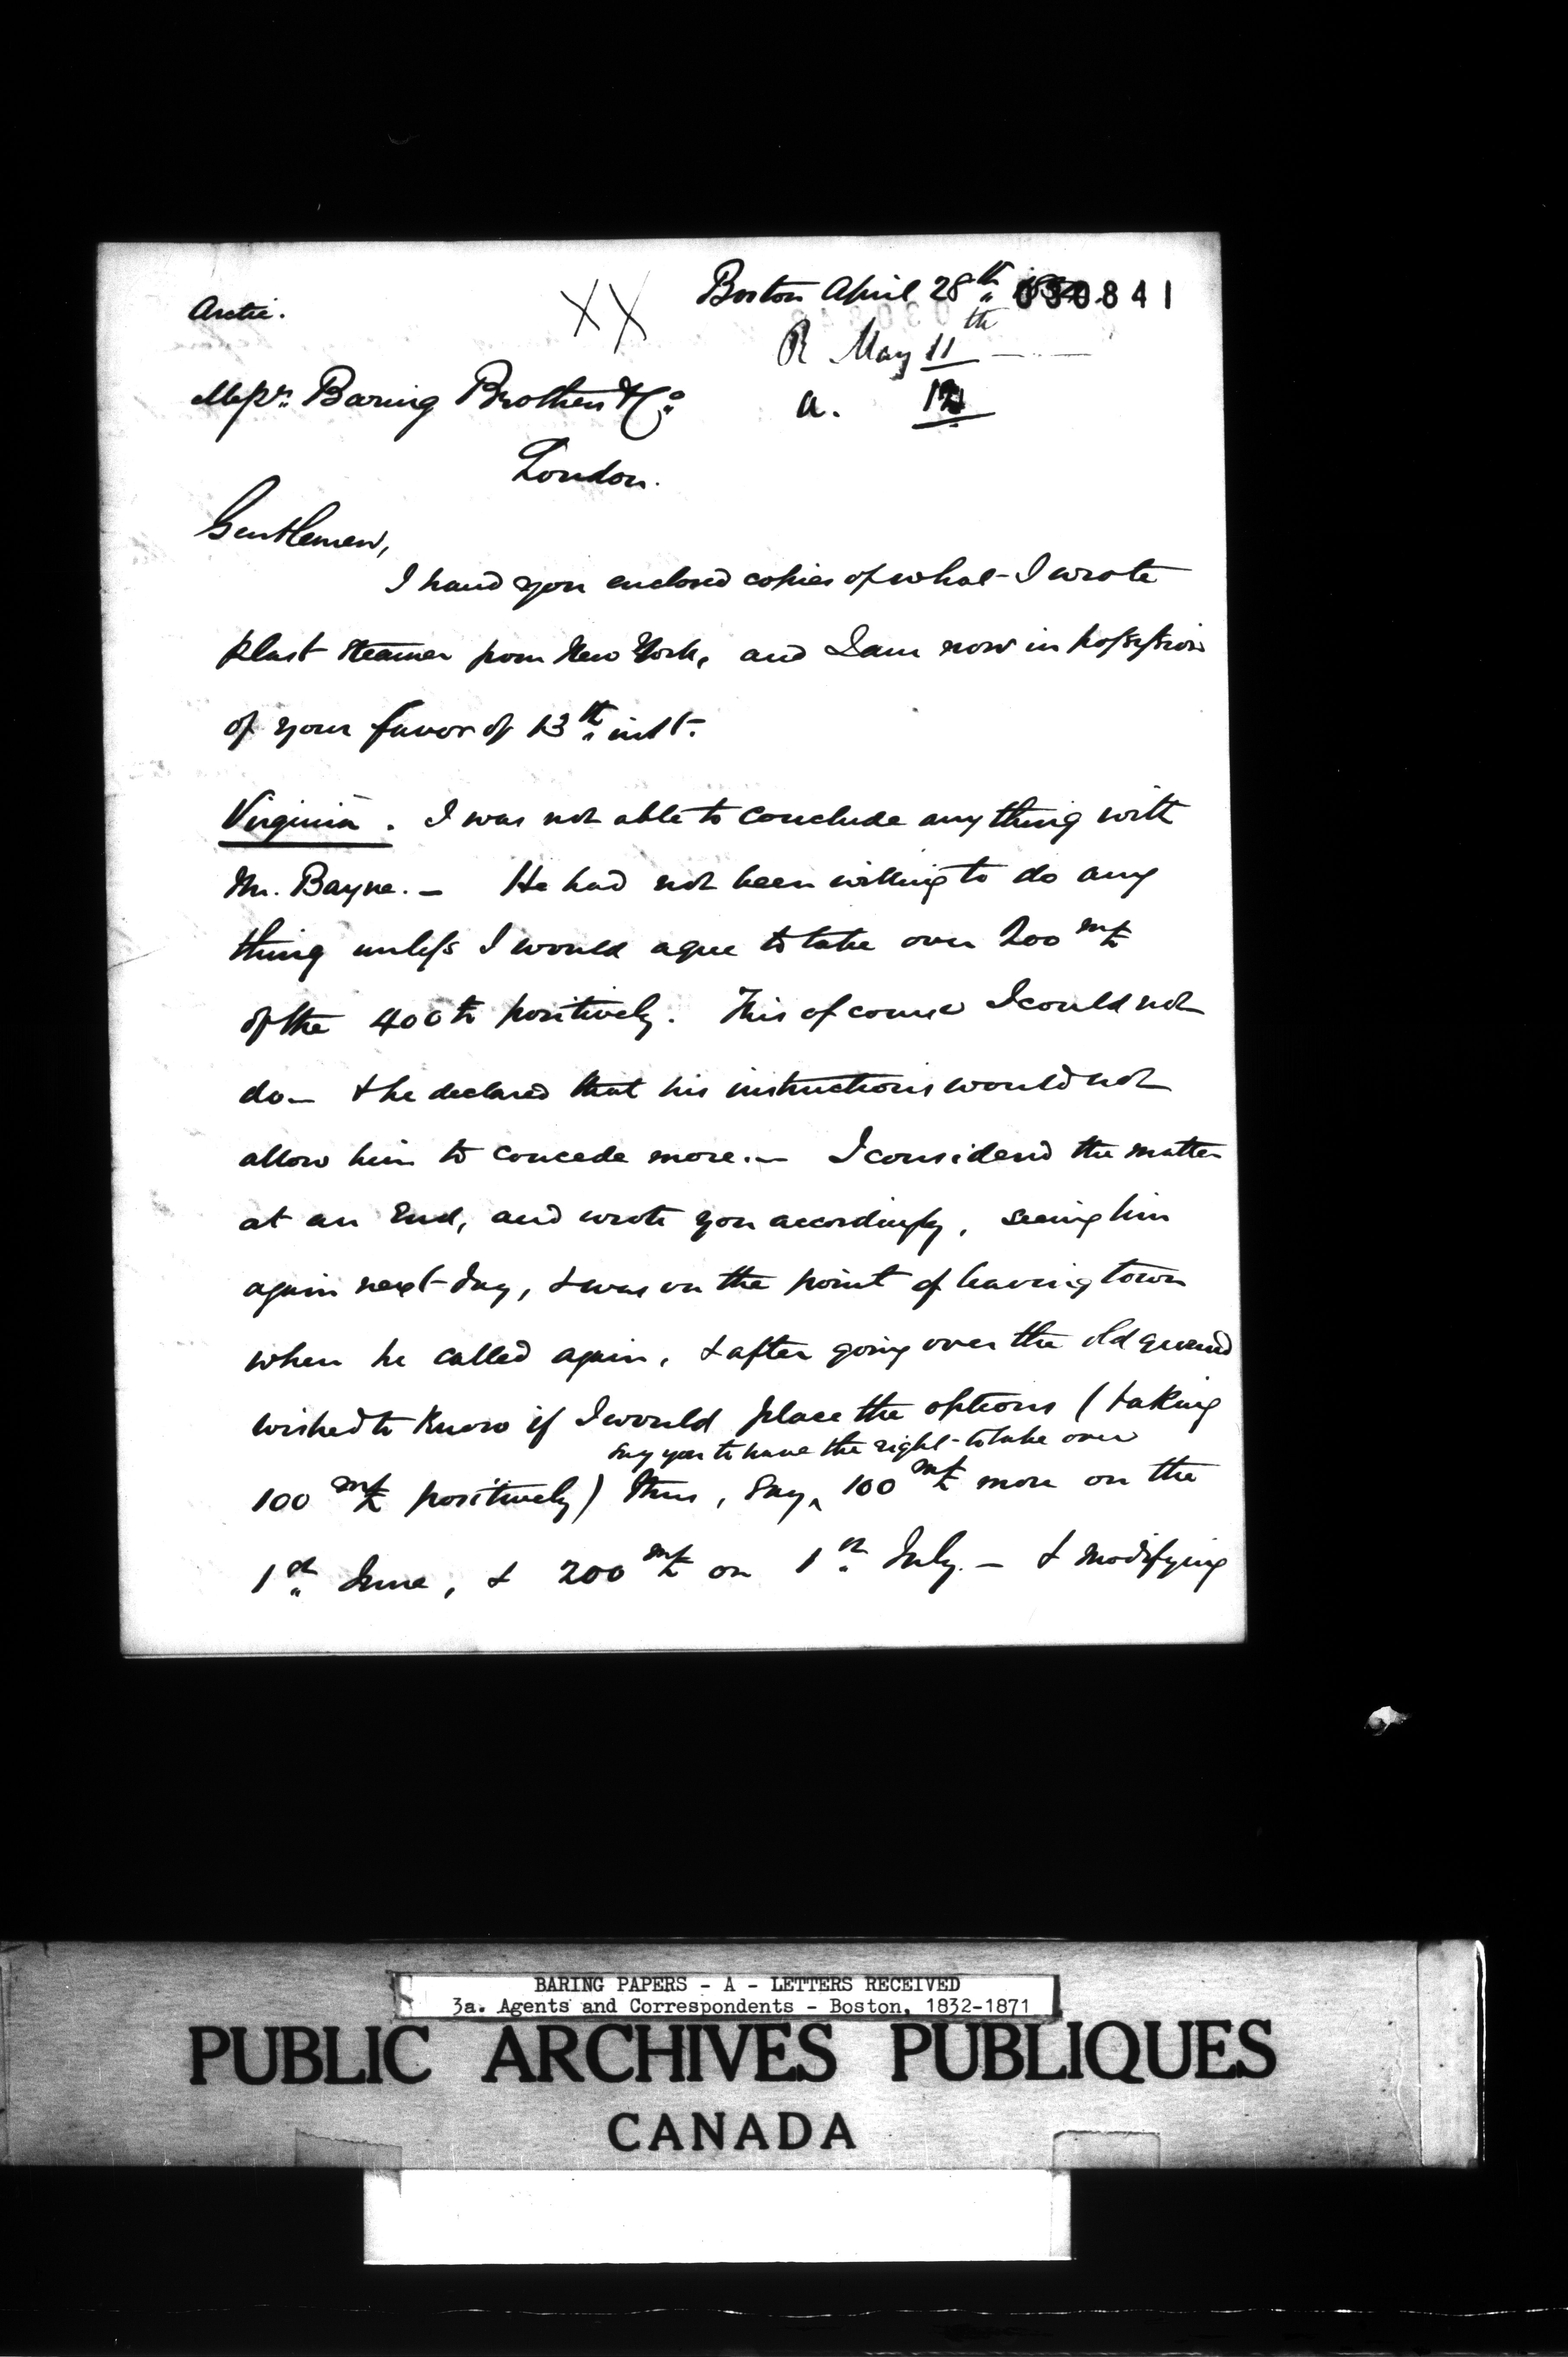 Arctic.
XX
Boston April 28th 030841
R May 11th
a. 12
Messrs. Baring Brothers & Co.
London.
Gentlemen,
I hand you enclosed copies of what I wrote
p last steamer from New York, and I am now in possession
of your favor of 13th inst.
Virginia. I was not able to conclude any thing with
Mr. Bayne. — He had not been willing to do any
thing unless I would agree to take over 200 m/£
of the 400 th positively. This of course I could not
do — & he declared that his instructions would not
allow him to concede more. — I considered the matter
at an end, and wrote you accordingly, seeing him
again next day, & was on the point of leaving town
when he called again, & after going over the old ground
wished to know if I would place the options (taking
say you to have the right to take over
100 m/£ positively) thus, say, ^ 100 m/£ more on the
1st June, & 200 m/£ on 1st July. — & modifying
BARING PAPERS - A - LETTERS RECEIVED
3a. Agents and Correspondents - Boston, 1832-1871
PUBLIC ARCHIVES PUBLIQUES
CANADA